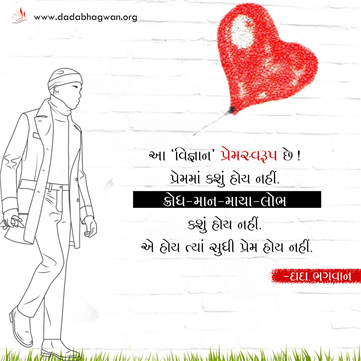 www.dadabhagwan.org
આ 'વિજ્ઞાન' પ્રેમસ્વરૂપ છે !
પ્રેમમાં કશું હોય નહીં.
ક્રોધ-માન-માયા-લોભ
કશું હોય નહીં.
એ હોય ત્યાં સુધી પ્રેમ હોય નહીં.
-દાદા ભગવાન